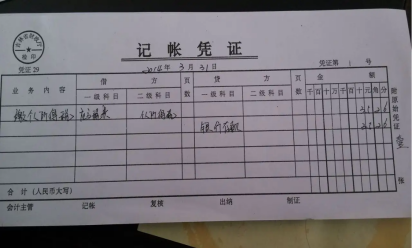 记 帐 凭 证
凭证 29
2014年 3月 31日
凭证第 1 号
业 务 内 容 借 方 页数 贷 方 页数 金 额
一级科目 二级科目 一级科目 二级科目 千百十万千百十元角分
缴个人所得税
个人所得税
银行存款
附原始凭证 张
合 计 (人民币大写)
会计主管 记帐 复核 出纳 制证